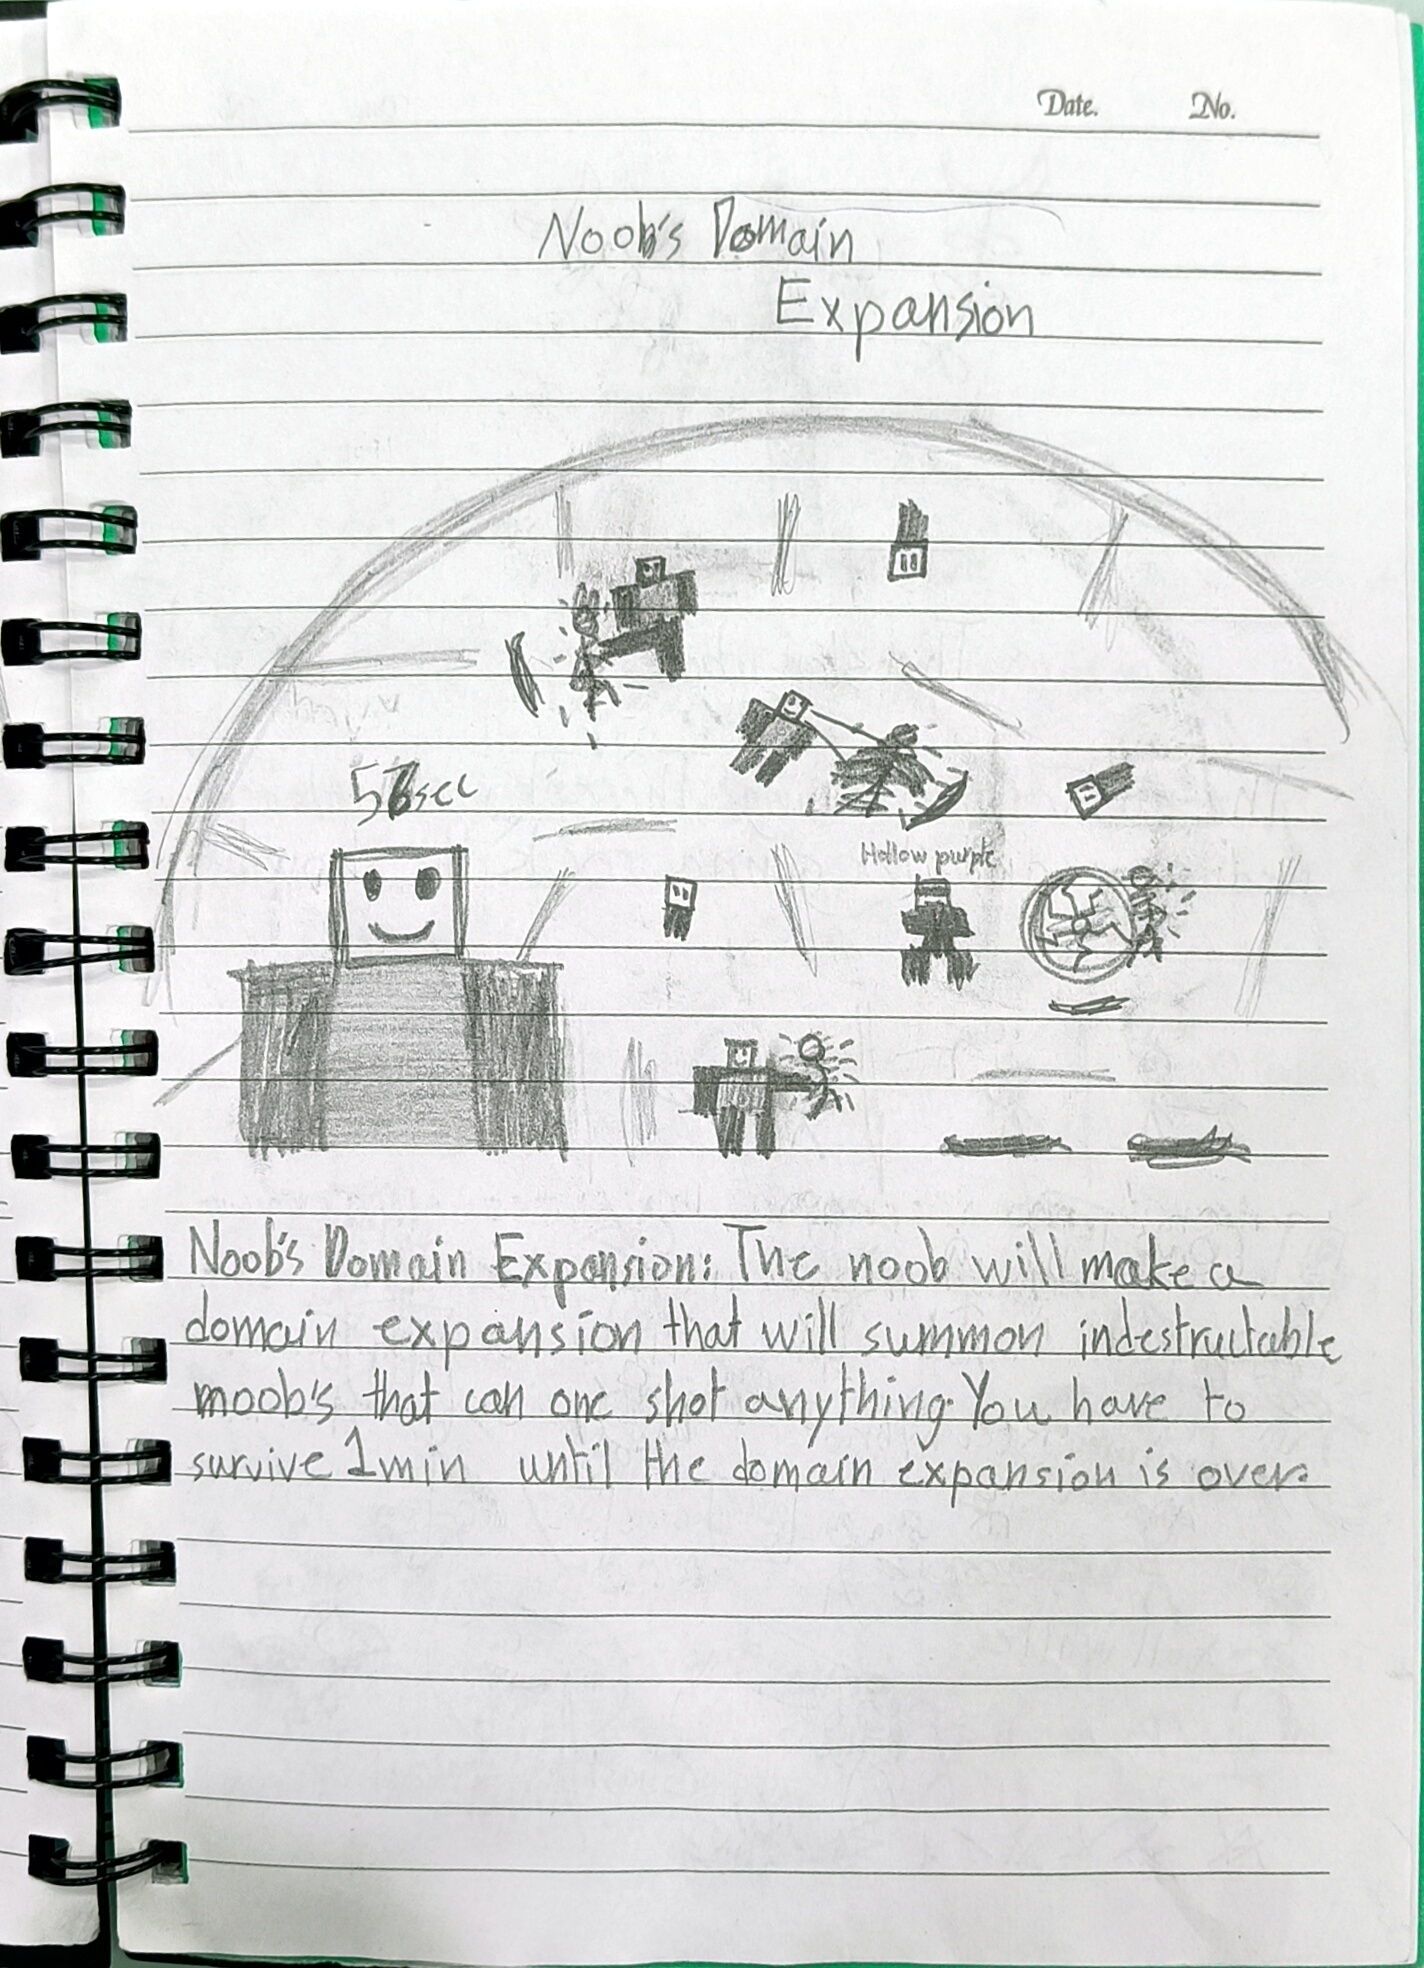 Date. No.
Noob's Domain
Expansion
57sec
Hollow purple
Noob's Domain Expansion: The noob will make a
domain expansion that will summon indestructable
moob's that can one shot anything. You have to
survive 1min until the domain expansion is over